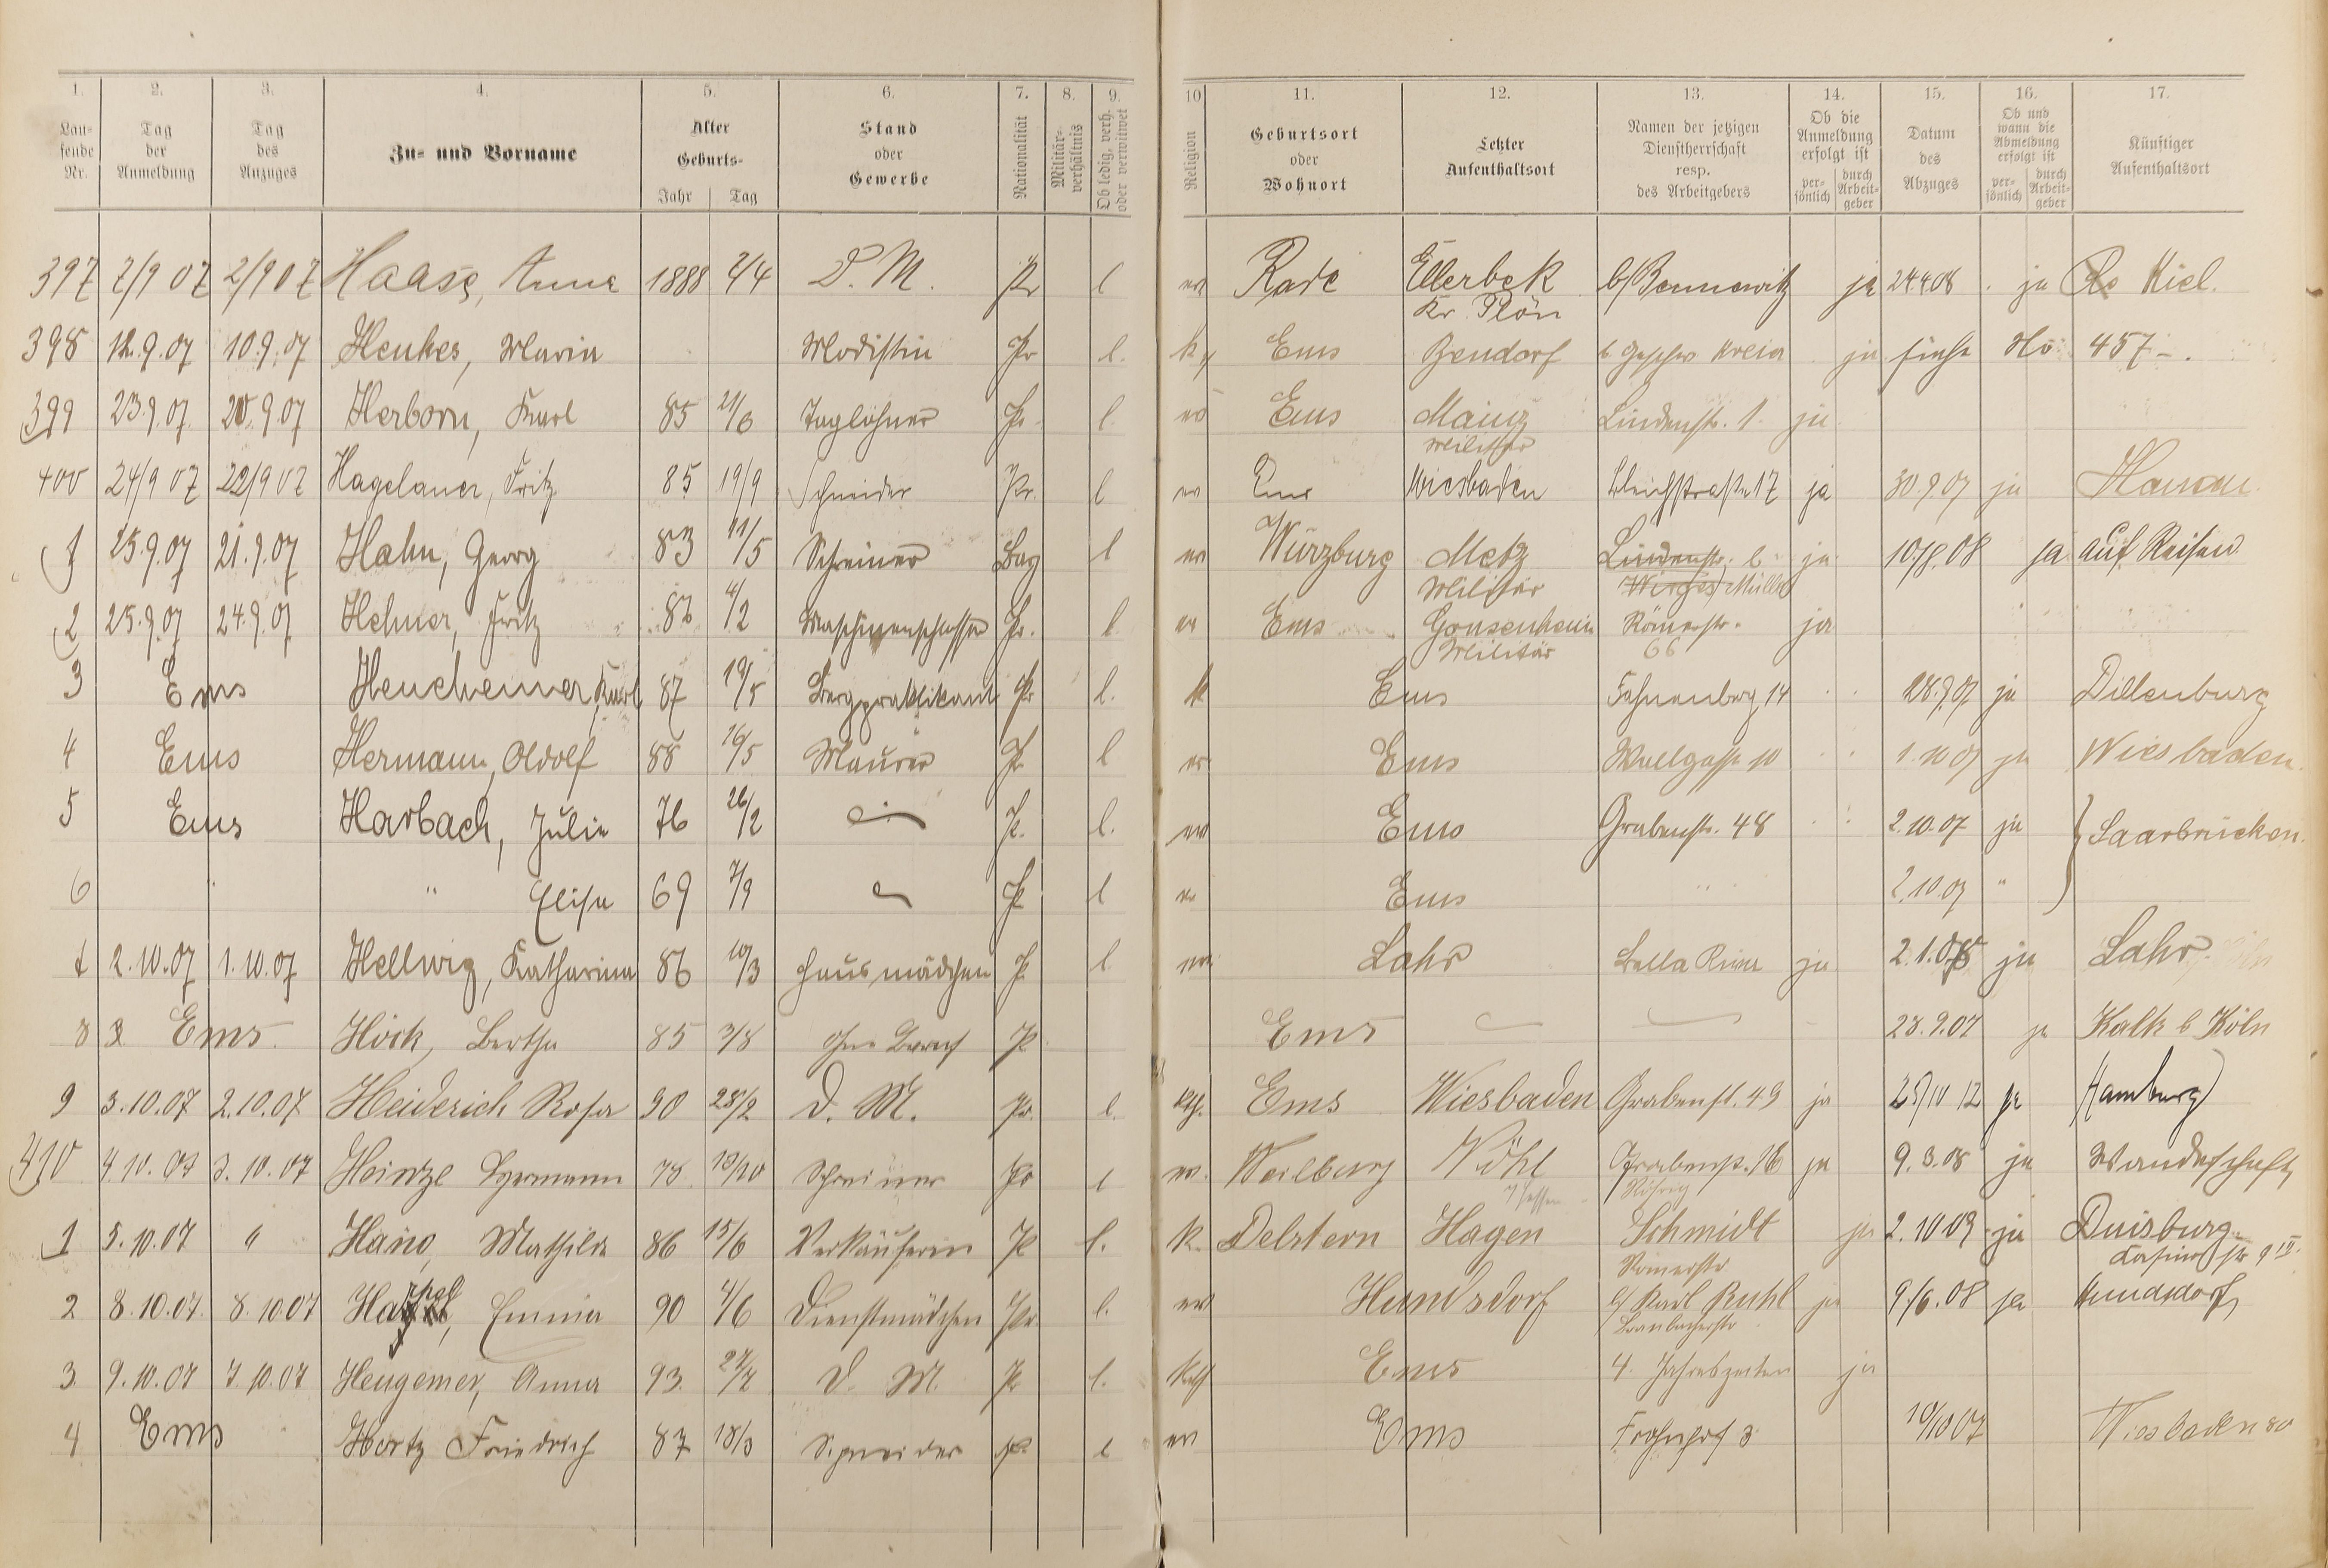 1. 2. 3. 4. 5. 6. 7. 8. 9. 10 11. 12. 13. 14. 15. 16. 17.
Lau-
fende
Nr.
Tag
der
Anmeldung
Tag
des
Anzuges
Zu- und Vorname
Alter
Geburts-
Jahr Tag
Stand
oder
Gewerbe
Nationalität
Militär-
verhältnis
Ob ledig, verh.
oder verwitwet
Religion
Geburtsort
oder
Wohnort
Letzter
Aufenthaltsort
Namen der jetzigen
Dienstherrschaft
resp.
des Arbeitgebers
Ob die
Anmeldung
erfolgt ist
per-
sönlich
durch
Arbeit-
geber
Datum
des
Abzuges
Ob und
wann die
Abmeldung
erfolgt ist
per-
sönlich
durch
Arbeit-
geber
Künftiger
Aufenthaltsort
397 2/9 07 2/9 07 Haase, Anna 1888 2/4 D. M. Pr l ev Rade Ellerbek b/Bennewitz ja 24.4.08 ja Kiel.
Kr. Plön
398 12.9.07 10.9.07 Henkes, Maria Modistin Pr l. k Ems Bendorf ja siehe No 457.
399 23.9.07 20.9.07 Herborn, Karl 85 21/6 Taglöhner Pr. l. ev Ems Mainz Lindenstr. 1. ja
Militär
400 24/9 07 22/9 07 Hagelauer, Fritz 85 19/9 Schneider Pr. l ev Ems Wiesbaden Bleichstraße 17 ja 30.9.07 ja Hanau.
1 25.9.07 21.9.07 Hahn, Georg 83 11/5 Schreiner Bay l ev Würzburg Metz Lindenstr. b ja 10/8.08 ja auf Reisen
Militär Wirges Müller
2 25.9.07 24.9.07 Hehner, Fritz 82 4/2 Maschinenschlosser Pr. l ev Ems Gonsenheim Römerstr. ja
Militär 66
3 Ems Heuchemer, Karl 87 19/5 Bergpraktikant Pr l. k Ems Fahnenberg 14 28.9.07 ja Dillenburg
4 Ems Hermann, Adolf 88 16/5 Maurer Pr l ev Ems Wallgasse 10 1.10.07 ja Wiesbaden.
5 Ems Harbach, Julie 76 26/2 Pr. l. ev Ems Grabenstr. 48 2.10.07 ja } Saarbrücken.
6 " Elisa 69 7/9 Pr l ev Ems " 2.10.07 "
7 2.10.07 1.10.07 Hellwig, Katharina 86 10/3 Hausmädchen Pr l ev Lahr Bella Riva ja 2.1.08 ja Lahr.
8 Ems. Höck, Bertha 85 3/8 ohne Beruf Pr Ems 28.9.07 ja Kalk b Köln
9 3.10.07 2.10.07 Heiderich Rosa 90 28/2 D. M. Pr. l. kth. Ems Wiesbaden Grabenst. 49 ja 25/10 12 ja Hamburg
410 4.10.07 3.10.07 Heinze Hermann 78 13/10 Schreiner Pr l ev. Weilburg Grabenstr. 16 ja 9.3.08 ja Wanderschaft
1 5.10.07 " Hano, Mathilde 86 15/6 Verkäuferin Pr l. k. Delstern Hagen Schmidt ja 2.10.09 ja Duisburg.
Römerstr Kasinostr 9 II.
2 8.10.07. 8.10 07 Haspel, Emma 90 4/6 Dienstmädchen Pr. l. ev Hundsdorf b/ Karl Ruhl ja 9/6.08 ja Hundsdorf
3. 9.10.07 7.10.07 Heugemer, Anna 93. 27/7 D. M. Pr l. kath Ems 4 Jahreszeiten ja
4 Ems Hertz Friedrich 87 18/3 Schneider Pr l ev Ems Frohnhof 3 10/10 07 Wiesbaden